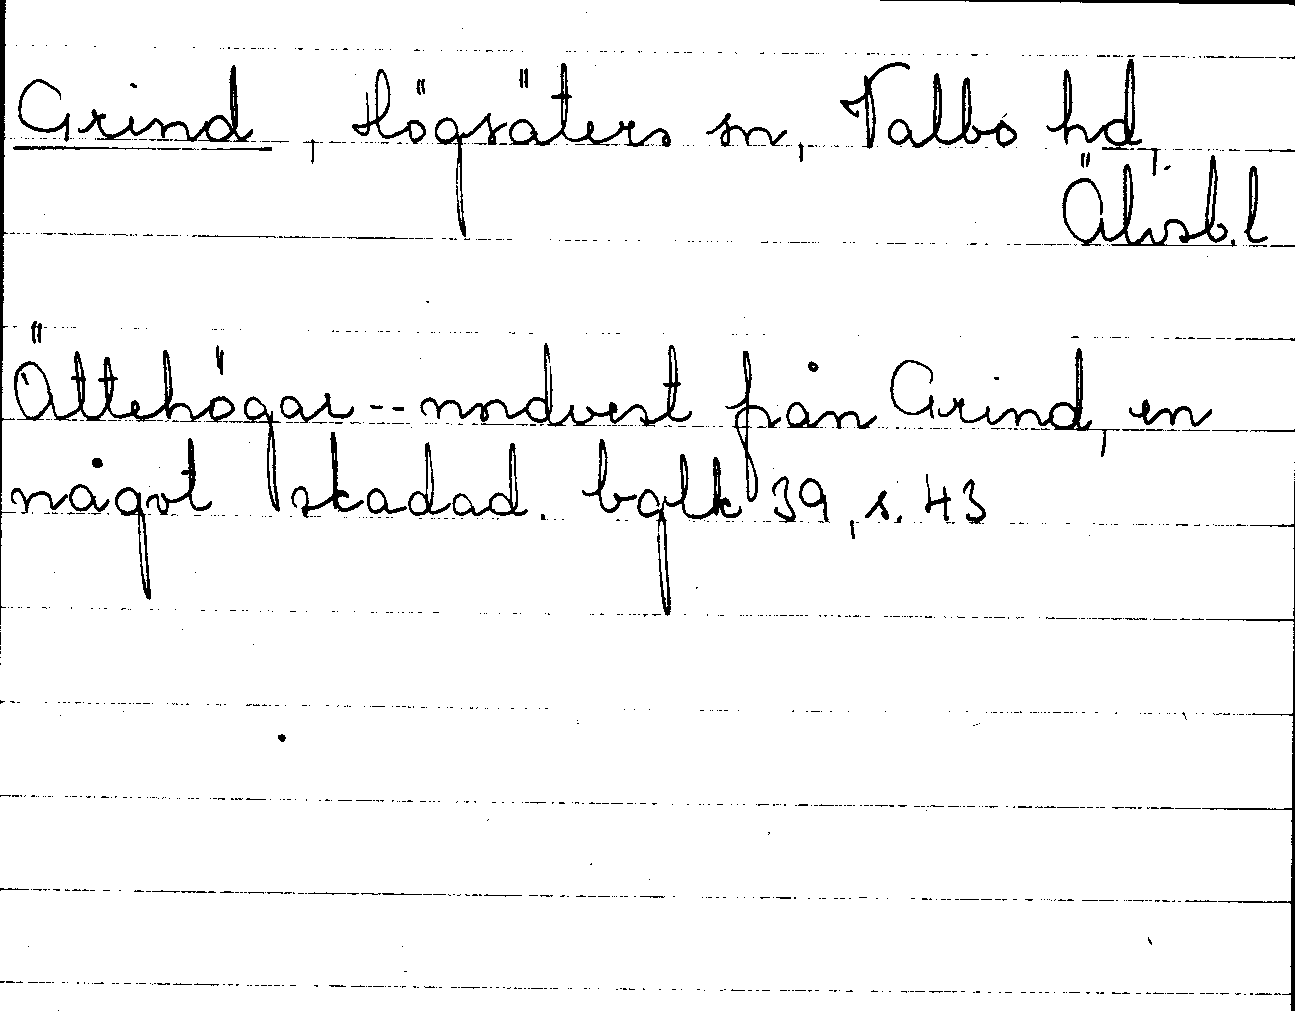 Grind, Högsäters sn, Valbo hd,
Älvsb. l
Ättehögar -- nordvest från Grind, en
något skadad. bglk 39, s. 43